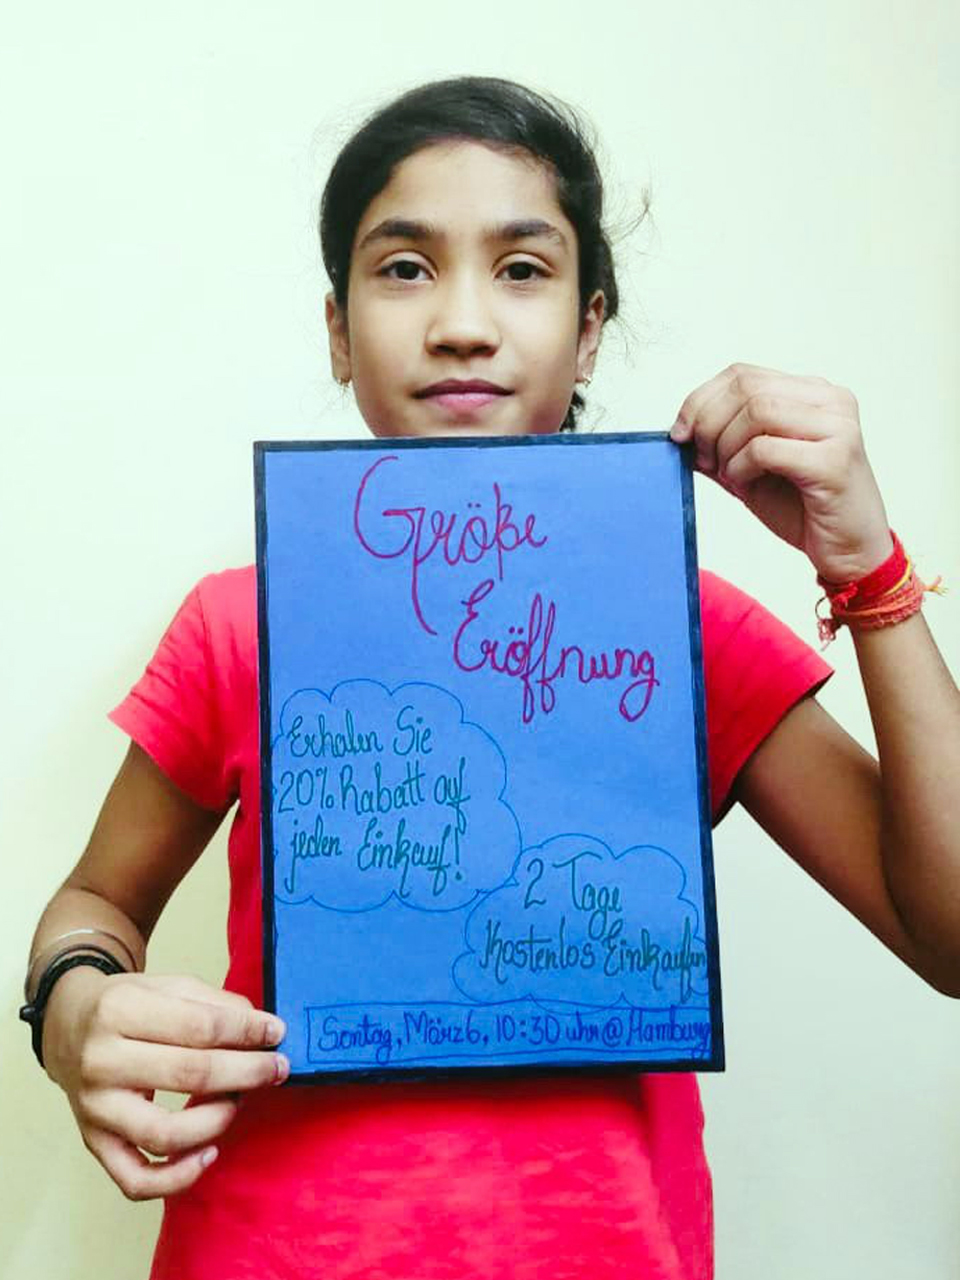 Größe
Eröffnung
Erhalen Sie
20% Rabatt auf
jeden Einkauf!
2 Tage
Kostenlos Einkaufen
Sontag, März 6, 10:30 uhr @ Hamburg